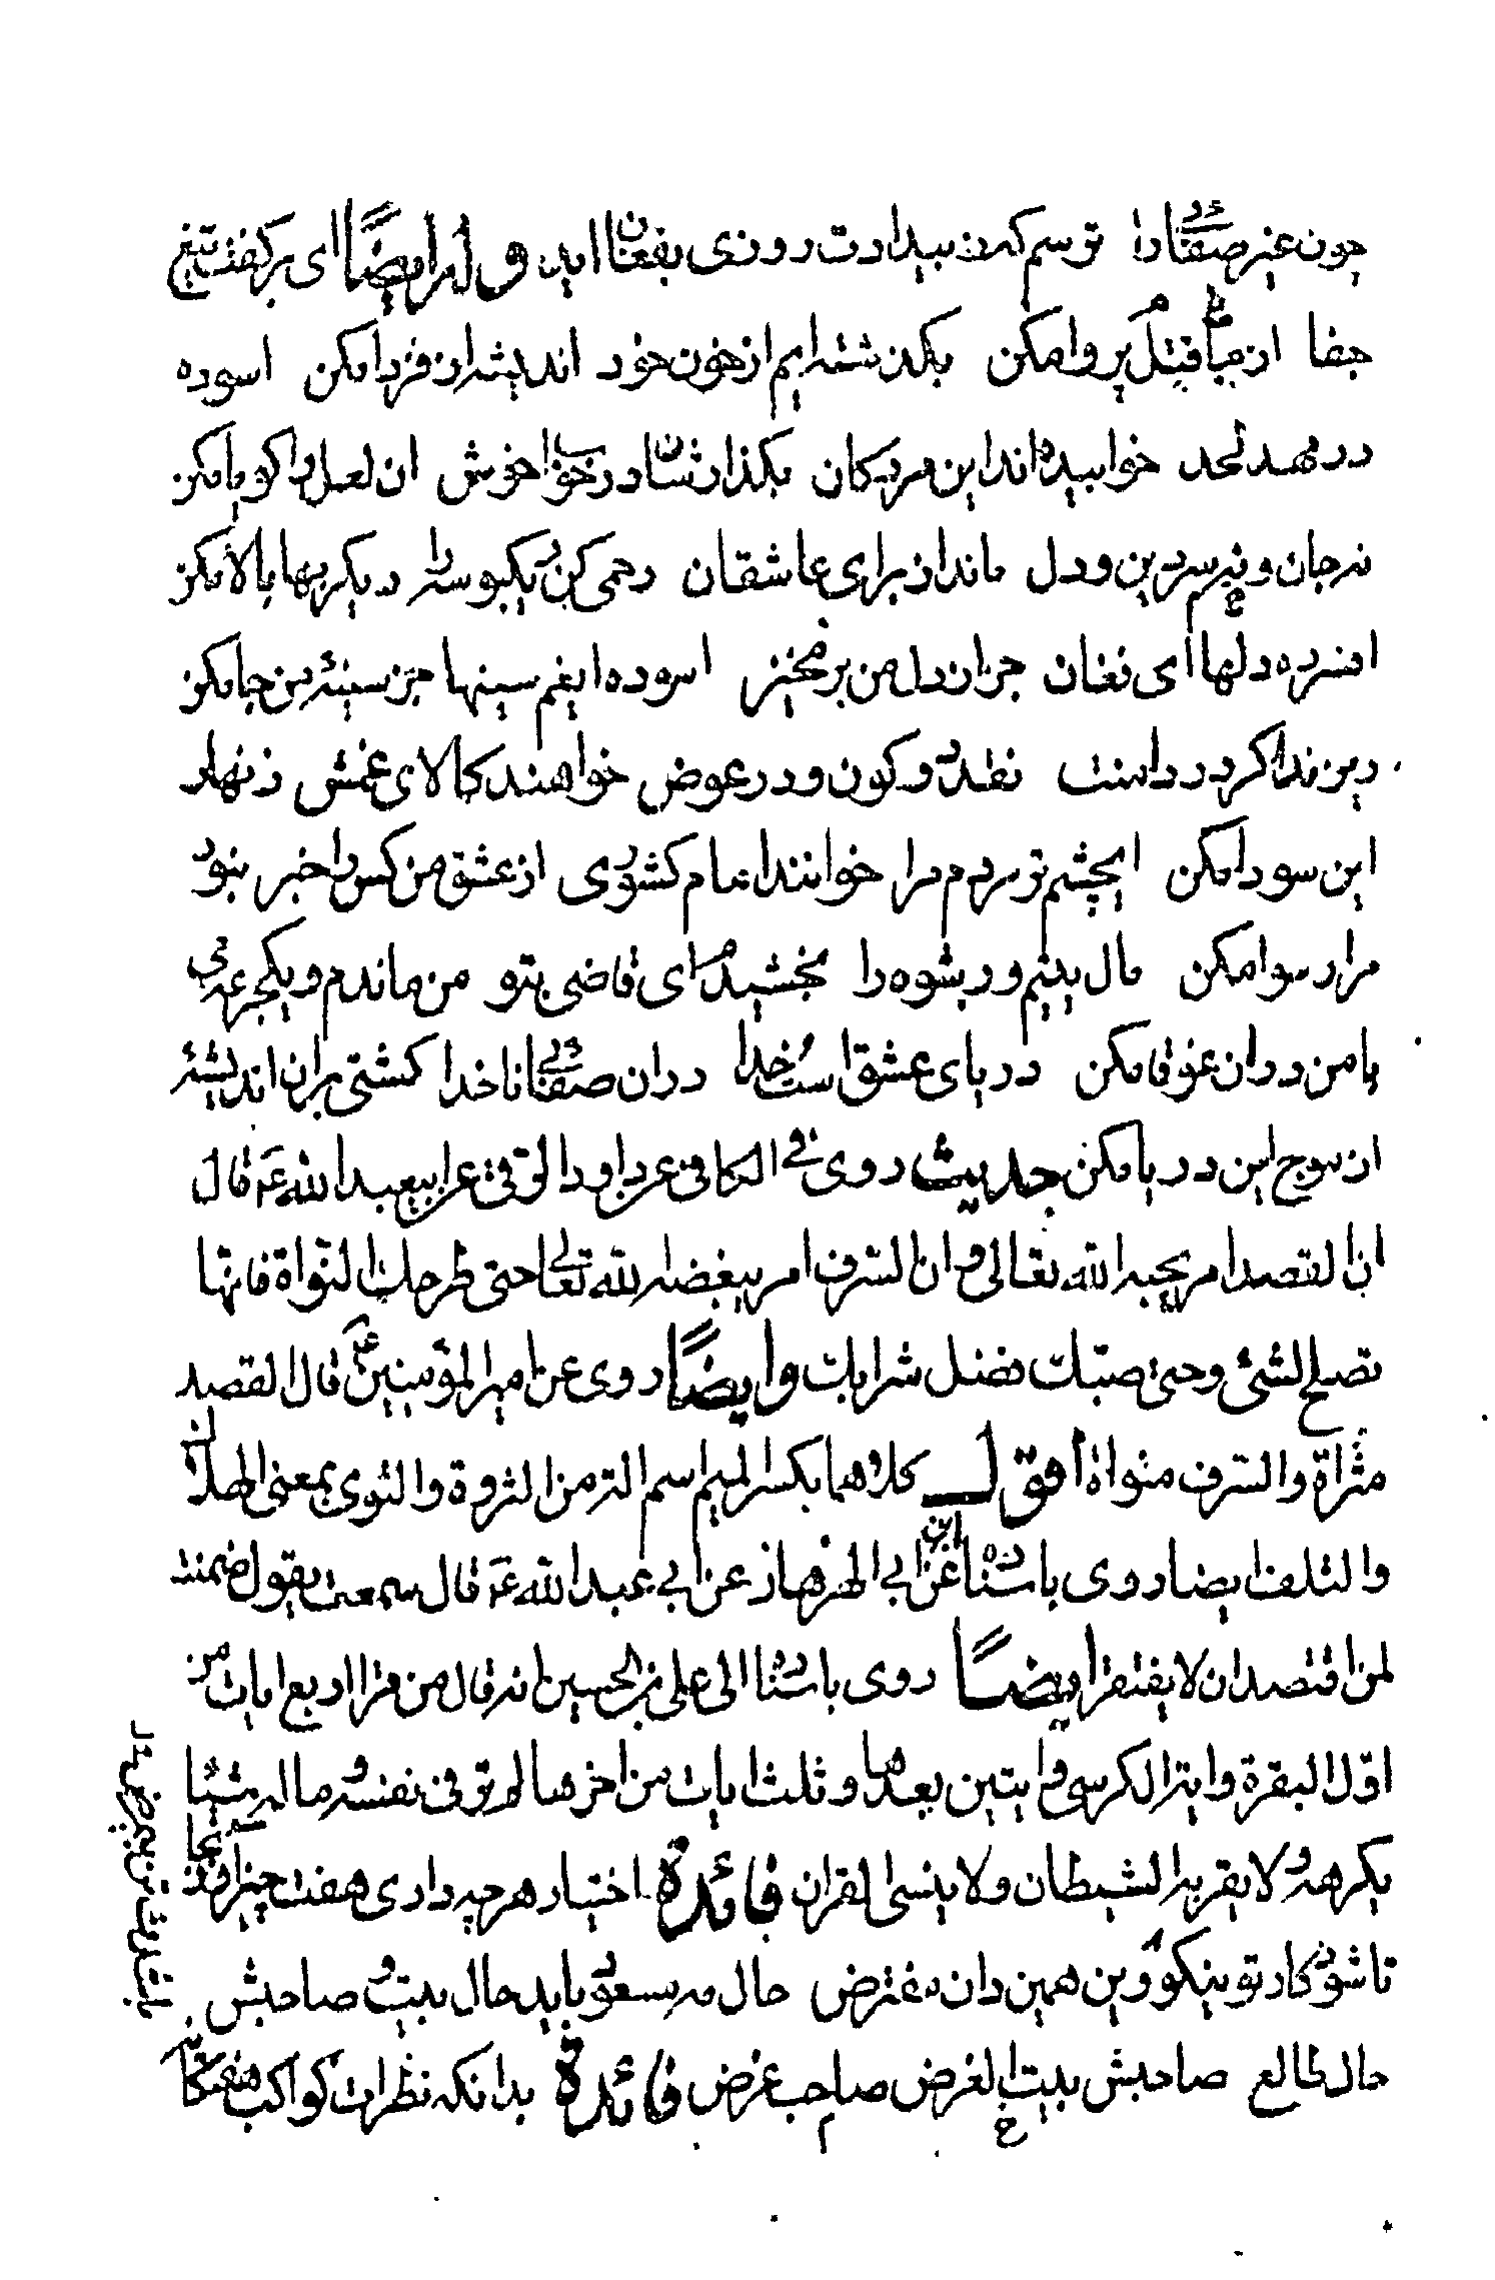 چون عنبر صفائی را تو سم کرد ببدادت روزی بفغان اید و له ایضًا ای بر کفت تیغ
جفا از قتل پروا مکن بگذشته ایم از خون خود اندیشه از فردا مکن اسوده
در مهد لحد خوابیده اند این مردکان بگذارشان در خواب خوش ان لعل را کویا مکن
نه جان و نه سر دین و دل ماند از برای عاشقان رحمی کن یکبوسه را دیگر بها بالا مکن
افسرده دلها ای فغان جز از دل من برمخیز اسوده ایغم سینها جز سینهٔ من جا مکن
دین ندا کر در داست نقد دو کون و در عوض خواهند کالای غمش زنهار
این سودا مکن ایچشم تر مردم مرا خوانند امام کشوری از عشق من کس را خبر نبود
مرا رسوا مکن مال یتیم و رشوه را بخشیدم ای قاضی بتو من ماندم و یکجرعه می
با من در ان غوغا مکن دریای عشق است خدا در ان صفائی ناخدا کشتی بران اندیشه
از موج این دریا مکن حدیث روی فی الکافی عن داود الرقی عن ابیعبد الله ع قال
ان القصد امر یحبه الله تعالی و ان السرف امر یبغضه الله تعالی حتی طرحک النواة فانها
تصلح لشئ و حتی صبک فضل شرابک و ایضًا روی عن امیر المؤمنین ع قال القصد
مثراة و السرف متواة اقول کلاهما بکسر المیم اسم الة من الثروة و التوی بمعنی الهلاک
و التلف ایضا روی باسناده عن ابن ابی الهزهاز عن ابی عبد الله ع قال سمعت یقول ضمنت
لمن اقتصد ان لا یفتقر ایضًا روی باسناده الی علی بن الحسین انه قال من قرا اربع ایات من
اول البقرة و ایة الکرسی و ایتین بعدها و ثلث ایات من اخرها لم یر فی نفسه و ماله شیئا
یکرهه و لا یقربه الشیطان و لا ینسی القران فائدة اختیار هر چه داری هفت چیز اور بجا
تا شود کار تو نیکو و این همین دان مفترض حال مه مسعود باید حال بیت و صاحبش
حال طالع صاحبش بیت الغرض صاحب غرض فائدة بدانکه نظرات کواکب